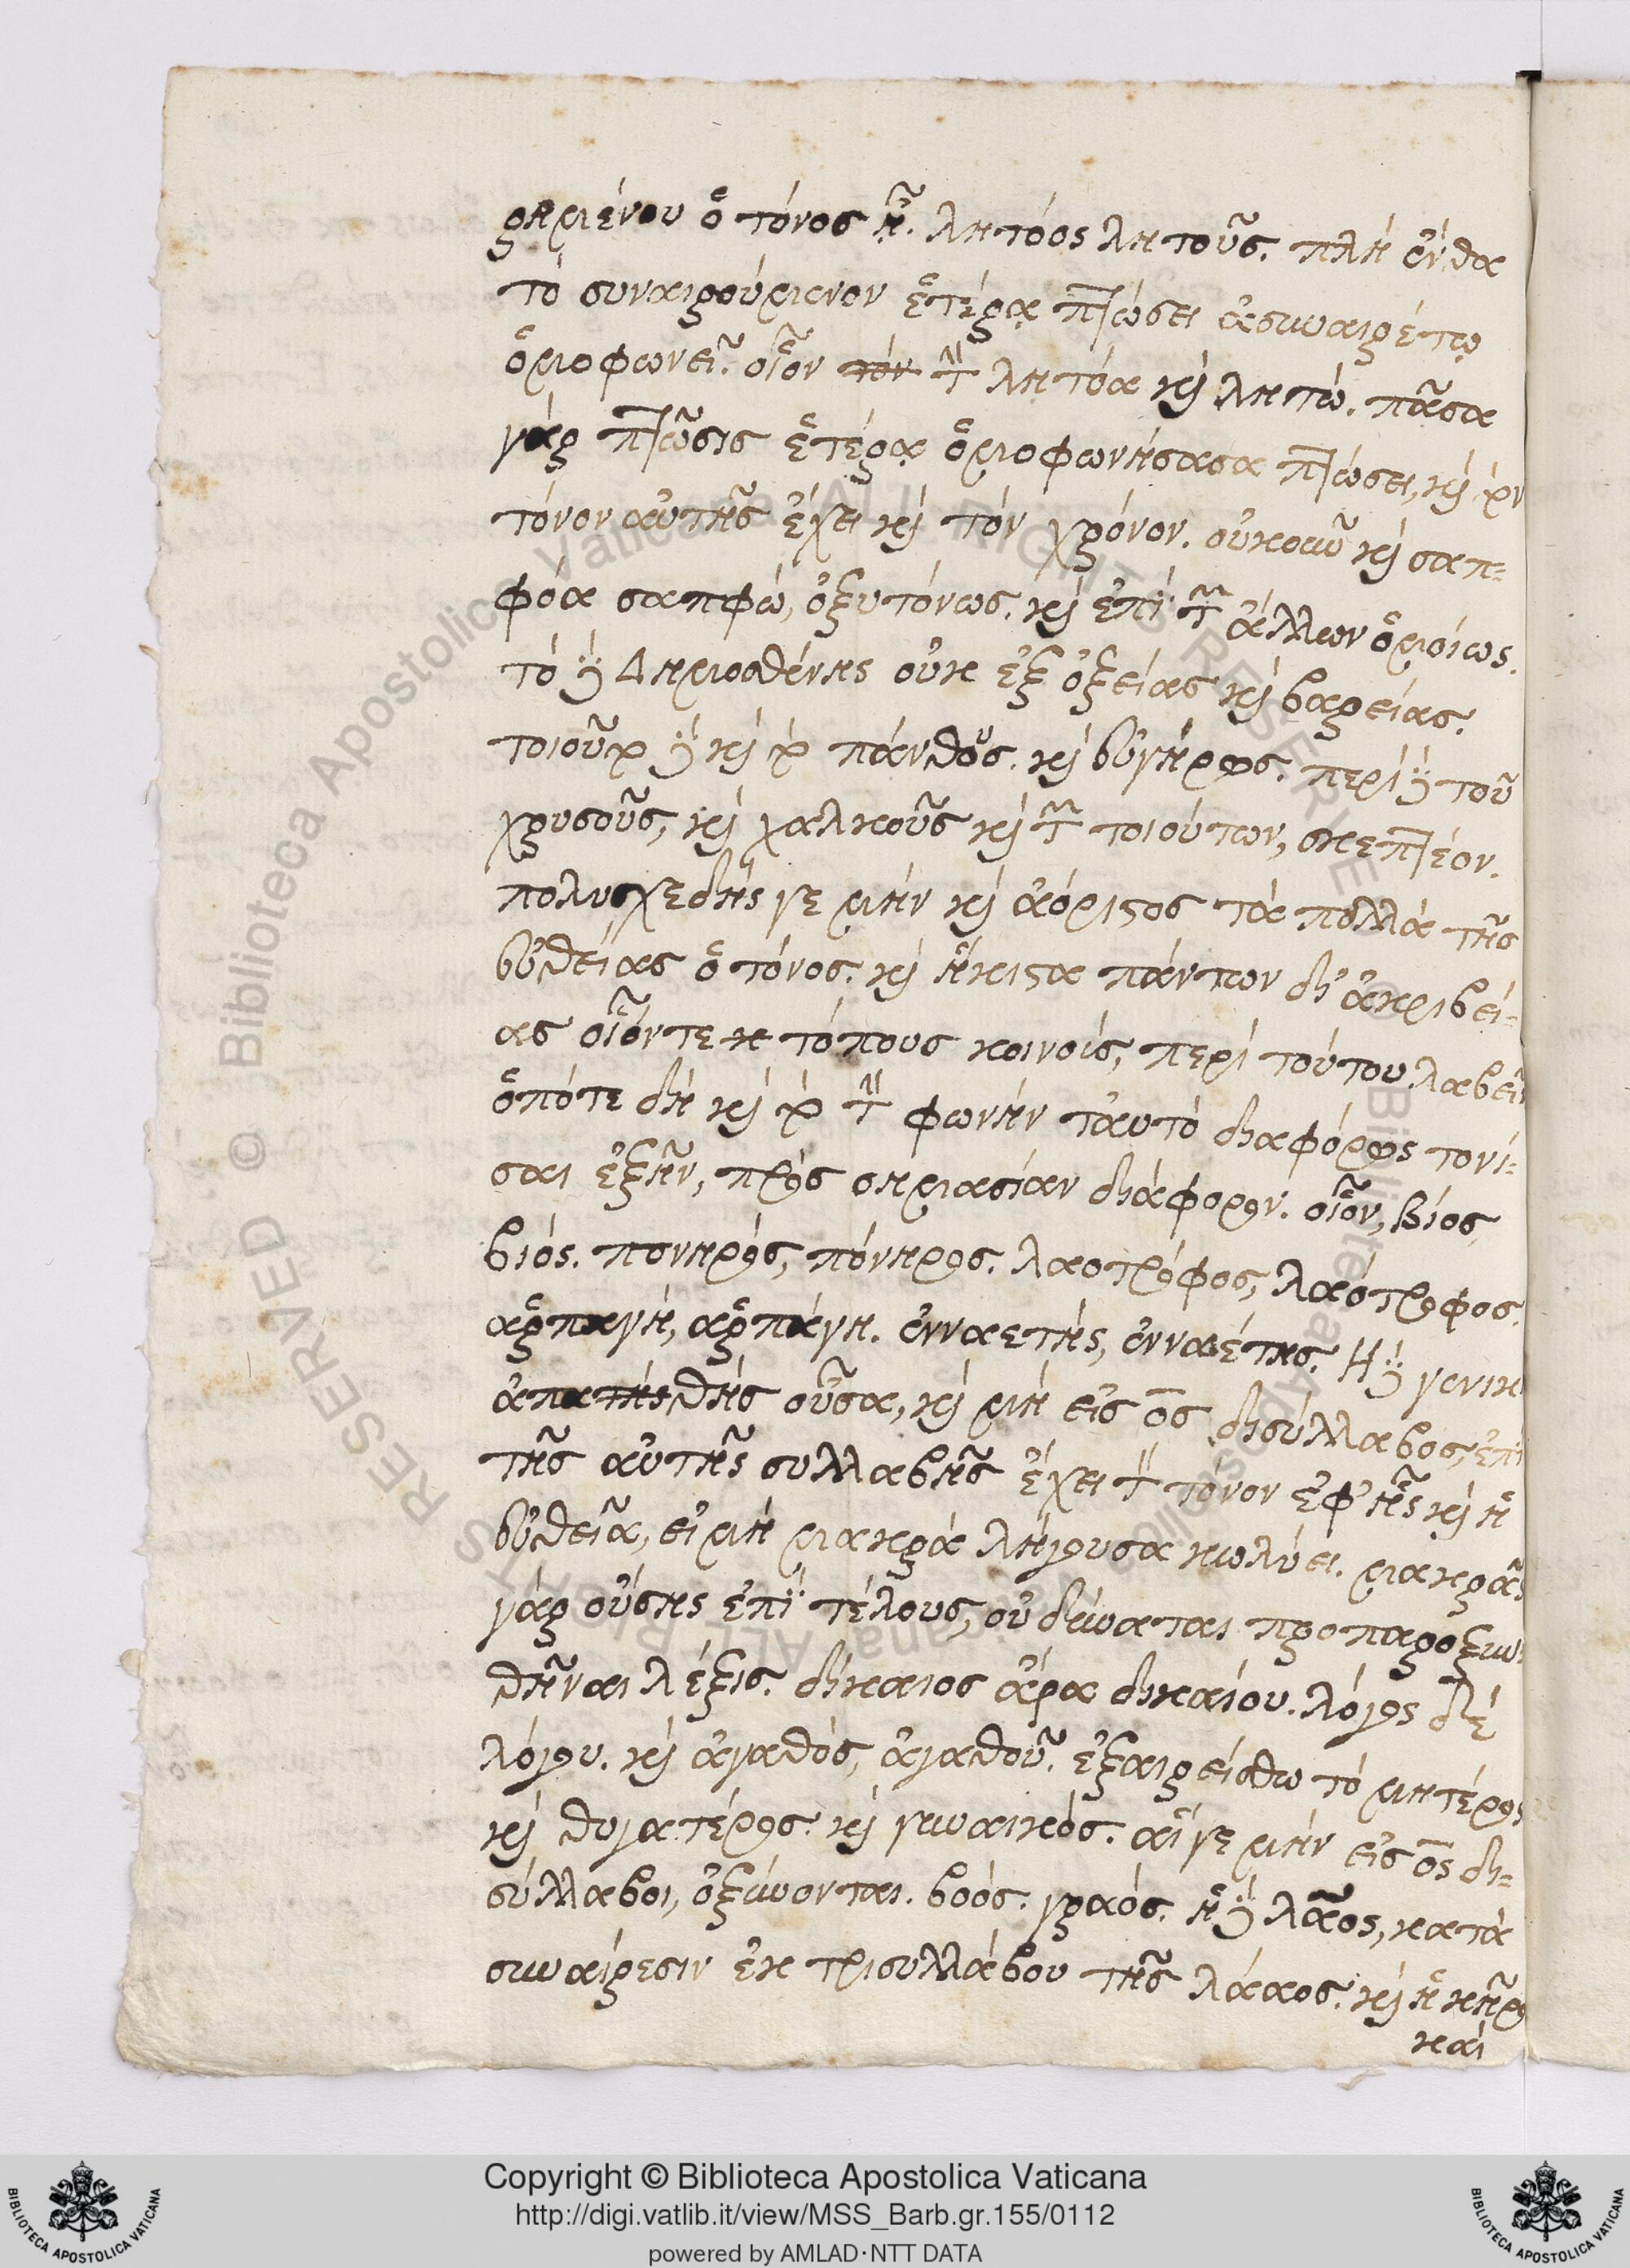 ρημένου ὁ τόνος ᾖ. λητόος λητοῦς. πλὴ ἔνθα
τὸ συναιρούμενον ἑτέρᾳ πτώσει ἀσυναιρέτῳ
ὁμοφωνεῖ. οἷον τὸν τὴν λητόα καὶ λητώ. πᾶσα
γὰρ πτῶσις ἑτέρᾳ ὁμοφωνήσασα πτώσει, καὶ τὸν
τόνον αὐτῆς ἔχει καὶ τὸν χρόνον. οὐκοῦν καὶ σαπ=
φόα σαπφώ, ὀξυτόνως. καὶ ἐπὶ τῶν ἄλλων ὁμοίως.
τὸ δὲ Δημοσθένης οὐκ ἐξ ὀξείας καὶ βαρείας.
τοιοῦτο δὲ καὶ τὸ πάνθους. καὶ εὐγήρως. περὶ δὲ τοῦ
χρυσοῦς, καὶ χαλκοῦς καὶ τῶν τοιούτων, σκεπτέον.
πολυσχεδὴς γε μὴν καὶ ἀόριστος τὰ πολλὰ τῆς
εὐθείας ὁ τόνος. καὶ ἥκιστα πάντων δι' ἀκριβεί=
ας οἷόντε κ τόπους κοινοὺς, περὶ τούτου λαβεῖν
ὁπότε δὴ καὶ τὸ τὴν φωνὴν ταυτὸ διαφόρως τονί=
σαι ἐξῆν, πρὸς σημασίαν διάφορον. οἷον, βίος,
βιός. πονηρός, πόνηρος. λαοτρόφος, λαότροφος.
ἁρπαγή, ἁρπάγη. ἐνναετής, ἐνναέτης. Ἡ δὲ γενικ
ἀπατὴςθὴς οὖσα, καὶ μὴ εἰς ος δισύλλαβος, ἐπὶ
τῆς αὐτῆς συλλαβῆς ἔχει τὸν τόνον ἐφ' ἧς καὶ ἡ
εὐθεῖα, εἰ μὴ μακρὰ λήγουσα κωλύει. μακρᾶς
γὰρ οὔσης ἐπὶ τέλους, οὐ δύναται προπαροξυν
θῆναι λέξις. δίκαιος ἄρα δικαίου. λόγος δὲ
λόγου. καὶ ἀγαθὸς, ἀγαθοῦ. ἐξαιρείσθω τὸ μητέρος
καὶ θυγατέρος. καὶ γυναικός. αἵ γε μὴν εἰς ος δι=
σύλλαβοι, ὀξύνονται. βοός. γραός. ἡ δὲ λᾶος, κατὰ
συναίρεσιν ἐκ τρισυλλάβου τῆς λάαος. καὶ ἡ κῆρο
καὶ
Copyright © Biblioteca Apostolica Vaticana
http://digi.vatlib.it/view/MSS_Barb.gr.155/0112
powered by AMLAD·NTT DATA